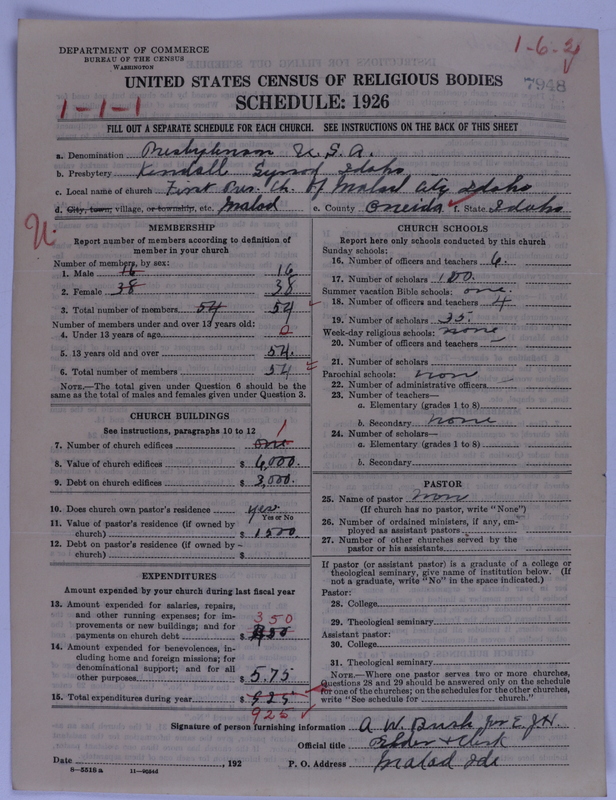 DEPARTMENT OF COMMERCE
BUREAU OF THE CENSUS
WASHINGTON
1-6-2
7948
UNITED STATES CENSUS OF RELIGIOUS BODIES
1-1-1
SCHEDULE: 1926
FILL OUT A SEPARATE SCHEDULE FOR EACH CHURCH. SEE INSTRUCTIONS ON THE BACK OF THIS SHEET
a. Denomination Presbyterian U. S. A.
b. Presbytery Kendall Synod Idaho
c. Local name of church First Pres. Ch. of Malad City Idaho
d. City, town, village, or township, etc. Malad e. County Oneida f. State Idaho
MEMBERSHIP
Report number of members according to definition of
member in your church
Number of members, by sex:
1. Male 16 16
2. Female 38 38
3. Total number of members 54 54
Number of members under and over 13 years old:
4. Under 13 years of age 0
5. 13 years old and over 54.
6. Total number of members 54
NOTE.—The total given under Question 6 should be the
same as the total of males and females given under Question 3.
CHURCH BUILDINGS
See instructions, paragraphs 10 to 12
7. Number of church edifices one 1
8. Value of church edifices $ 6,000.
9. Debt on church edifices $ 3,000.
10. Does church own pastor's residence yes
Yes or No
11. Value of pastor's residence (if owned by
church) $ 1500.
12. Debt on pastor's residence (if owned by
church) $
EXPENDITURES
Amount expended by your church during last fiscal year
13. Amount expended for salaries, repairs,
and other running expenses; for im-
provements or new buildings; and for
payments on church debt $ 350
14. Amount expended for benevolences, in-
cluding home and foreign missions; for
denominational support; and for all
other purposes $ 575
15. Total expenditures during year $ 925
925
CHURCH SCHOOLS
Report here only schools conducted by this church
Sunday schools:
16. Number of officers and teachers 6.
17. Number of scholars 100.
Summer vacation Bible schools: one.
18. Number of officers and teachers 4
19. Number of scholars 35.
Week-day religious schools: none
20. Number of officers and teachers
21. Number of scholars
Parochial schools: non
22. Number of administrative officers
23. Number of teachers—
a. Elementary (grades 1 to 8)
b. Secondary none
24. Number of scholars—
a. Elementary (grades 1 to 8)
b. Secondary
PASTOR
25. Name of pastor non
(If church has no pastor, write "None")
26. Number of ordained ministers, if any, em-
ployed as assistant pastors
27. Number of other churches served by the
pastor or his assistants
If pastor (or assistant pastor) is a graduate of a college or
theological seminary, give name of institution below. (If
not a graduate, write "No" in the space indicated.)
Pastor:
28. College
29. Theological seminary
Assistant pastor:
30. College
31. Theological seminary
NOTE.—Where one pastor serves two or more churches,
Questions 28 and 29 should be answered only on the schedule
for one of the churches; on the schedules for the other churches,
write "See schedule for church."
Signature of person furnishing information A. W. Bush for E. J. H.
Official title Elder & Clerk
Date , 192 P. O. Address Malad Ida
8—5518 a 11—9564d